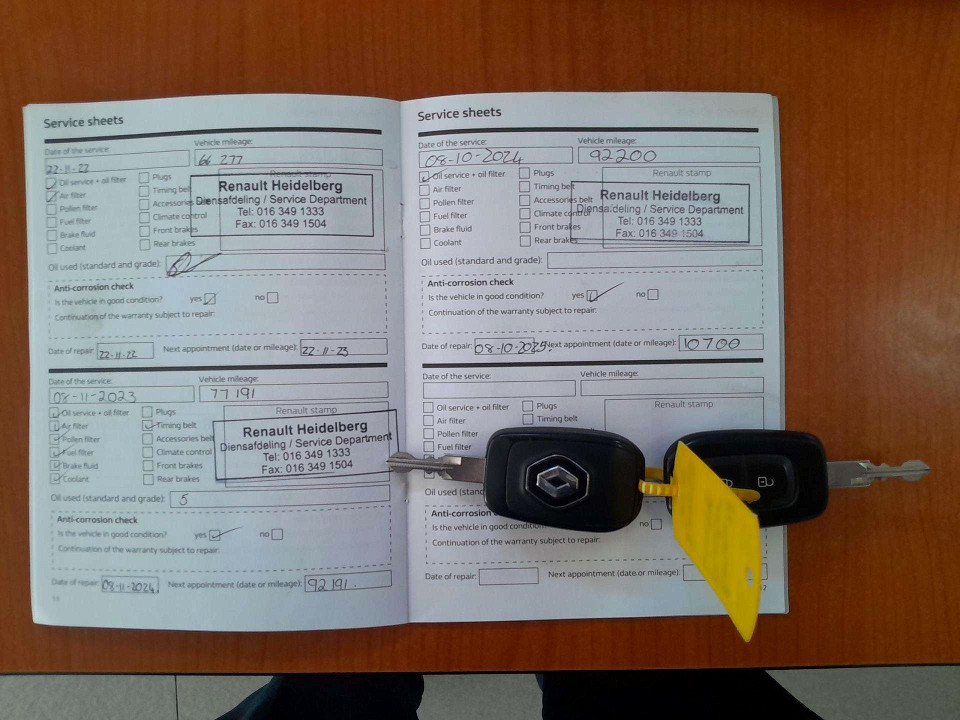 Service sheets
Date of the service: Vehicle mileage:
22-11-22 66 277
Oil service + oil filter Plugs Renault stamp
Air filter Timing belt
Pollen filter Accessories belt
Fuel filter Climate control
Brake fluid Front brakes
Coolant Rear brakes
Renault Heidelberg
Diensafdeling / Service Department
Tel: 016 349 1333
Fax: 016 349 1504
Oil used (standard and grade):
Anti-corrosion check
Is the vehicle in good condition? yes no
Continuation of the warranty subject to repair:
Date of repair: 22-11-22 Next appointment (date or mileage): 22-11-23
Date of the service: Vehicle mileage:
08-11-2023 77 191
Oil service + oil filter Plugs Renault stamp
Air filter Timing belt
Pollen filter Accessories belt
Fuel filter Climate control
Brake fluid Front brakes
Coolant Rear brakes
Renault Heidelberg
Diensafdeling / Service Department
Tel: 016 349 1333
Fax: 016 349 1504
Oil used (standard and grade): 5
Anti-corrosion check
Is the vehicle in good condition? yes no
Continuation of the warranty subject to repair:
Date of repair: 08-11-2024 Next appointment (date or mileage): 92191
Service sheets
Date of the service: Vehicle mileage:
08-10-2024 92200
Oil service + oil filter Plugs Renault stamp
Air filter Timing belt
Pollen filter Accessories belt
Fuel filter Climate control
Brake fluid Front brakes
Coolant Rear brakes
Renault Heidelberg
Diensafdeling / Service Department
Tel: 016 349 1333
Fax: 016 349 1504
Oil used (standard and grade):
Anti-corrosion check
Is the vehicle in good condition? yes no
Continuation of the warranty subject to repair:
Date of repair: 08-10-2025. Next appointment (date or mileage): 10700
Date of the service: Vehicle mileage:
Oil service + oil filter Plugs Renault stamp
Air filter Timing belt
Pollen filter
Fuel filter
Oil used (stand
Anti-corrosion
Is the vehicle in good condition? no
Continuation of the warranty subject to repair:
Date of repair: Next appointment (date or mileage):